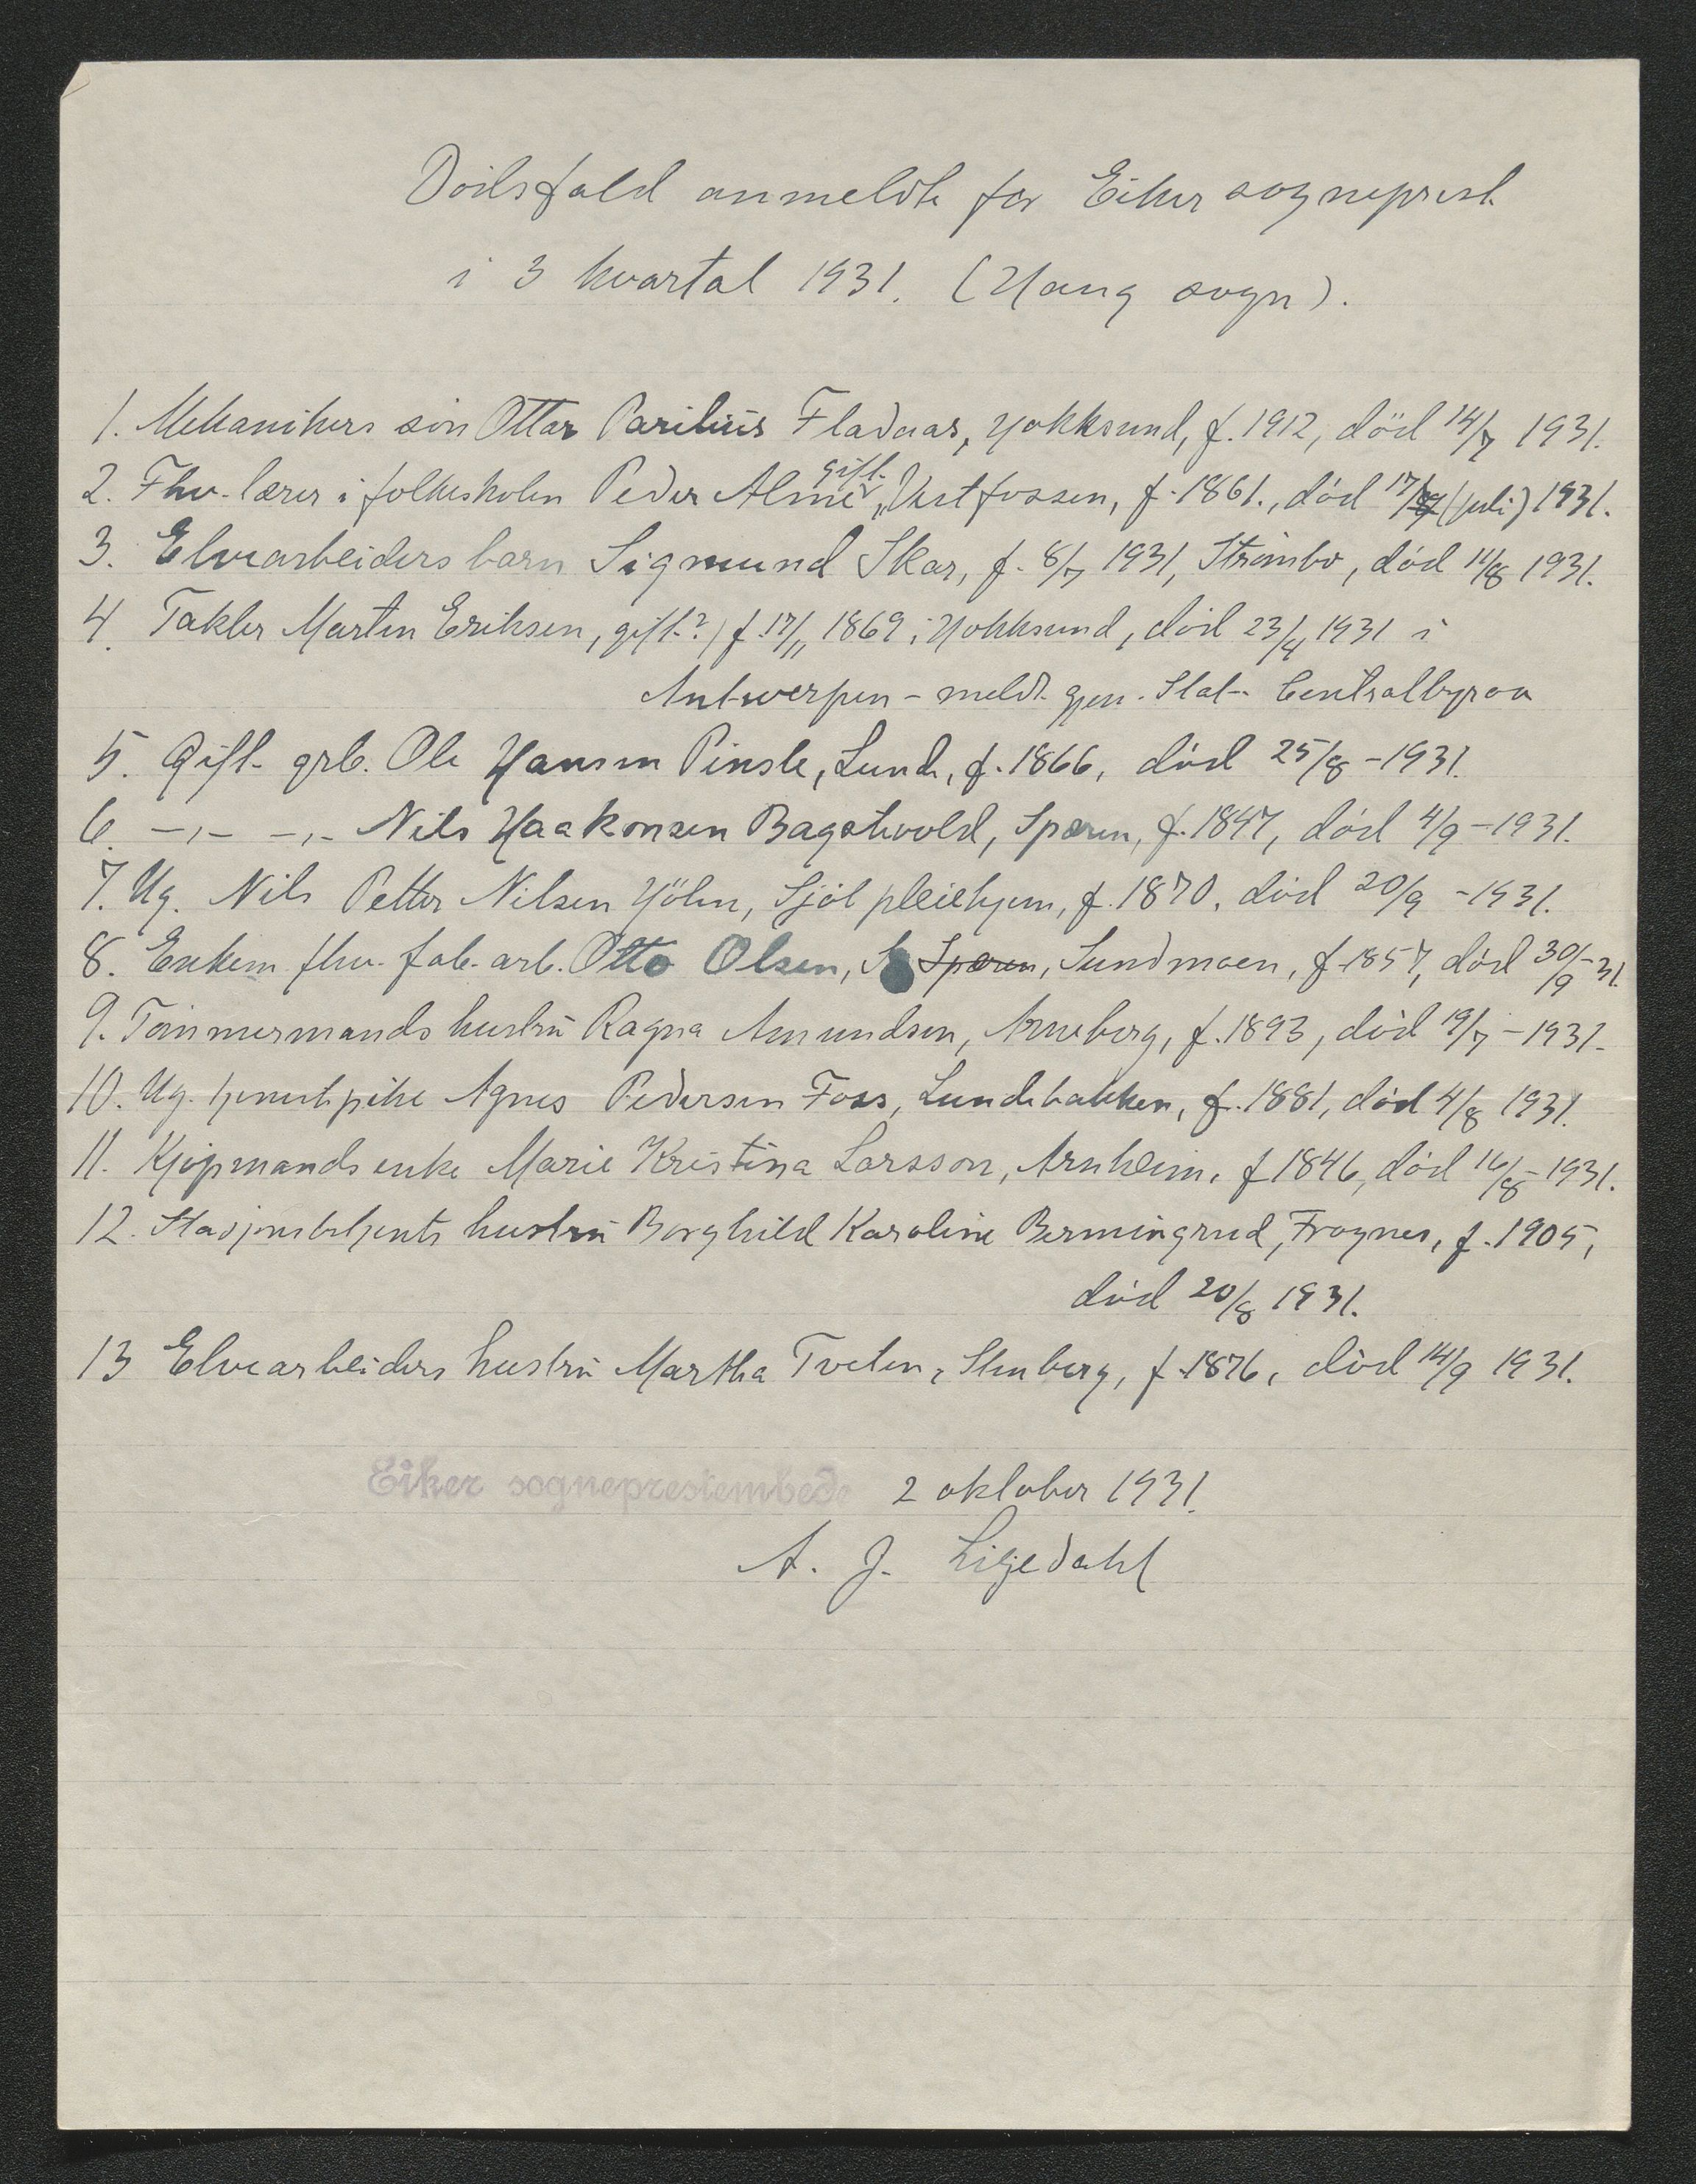 Dödsfald anmeldt for Eiker sogneprest
i 3 kvartal 1931. (Haug sogn).
1. Mekanikers sön Ottar Parilius Fladaas, Hokksund, f. 1912, död 14/7 1931.
2. Fhv. lærer i folkeskolen Peder Alme, gift. Vestfossen, f. 1861., död 17/7 (juli) 1931.
3. Elvearbeiders barn Sigmund Skar, f. 8/7 1931, Strömbo, död 14/8 1931.
4. Takler Martin Eriksen, gift?) f. 17/11 1869 i Hokksund, död 23/4 1931 i
Antwerpen - meldt gjen. Stat. Centralbyraa
5. Gift grb. Ole Hansen Pinsle, Lunde, f. 1866, död 25/8 - 1931.
6. -"- -"- Nils Haakonsen Bagstevold, Spæren, f. 1847, död 4/9 - 1931.
7. Ug. Nils Petter Nilsen Hölen, Sjöl pleiehjem, f. 1870, död 20/9 - 1931.
8. Enkem. fhv. fab. arb. Otto Olsen, Spæren, Sundmoen, f. 1857, död 30/9 - 31.
9. Tömmermands hustru Ragna Amundsen, Arneberg, f. 1893, död 19/7 - 1931.
10. Ug. tjenestepike Agnes Pedersen Foss, Lundebakken, f. 1881, död 4/8 1931.
11. Kjöpmands enke Marie Kristina Larsson, Arnheim, f 1846, död 16/8 - 1931.
12. Stasjonsbetjents hustru Borghild Karoline Bermingrud, Frogner, f. 1905,
död 20/8 1931.
13 Elvearbeiders hustru Martha Tveten, Stenberg, f. 1876, död 14/9 1931.
Eiker sogneprestembede 2 oktober 1931.
A. J. Liljedahl